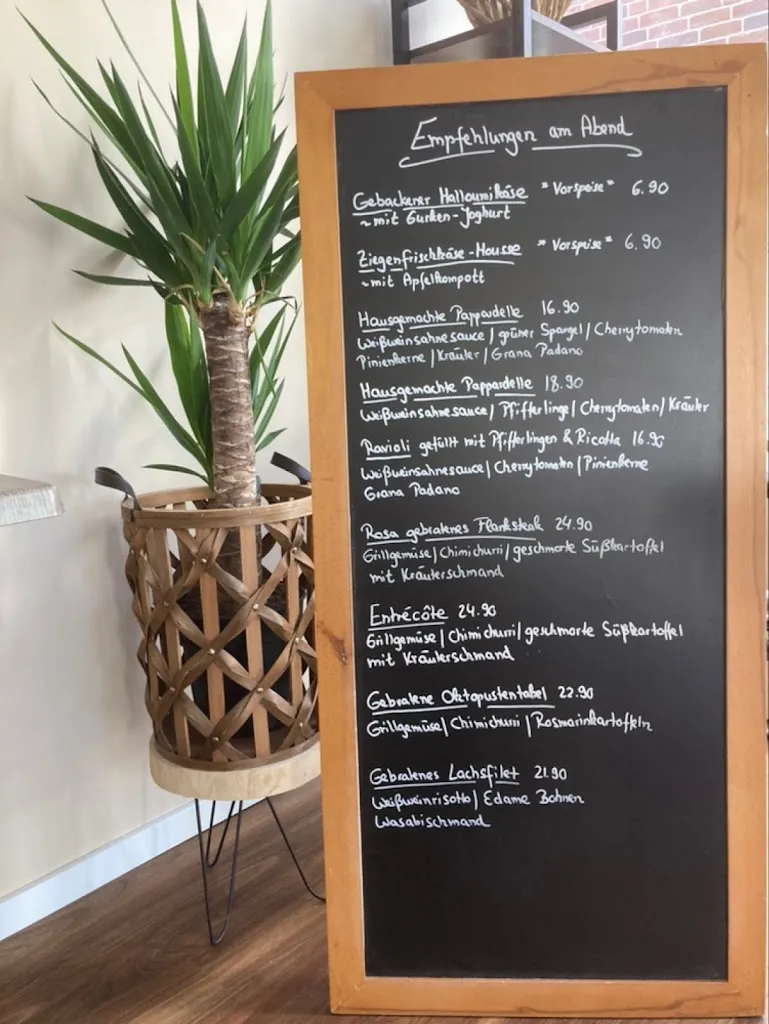 Empfehlungen am Abend
Gebackener Halloumikäse "Vorspeise" 6.90
~ mit Gurken-Joghurt
Ziegenfrischkäse-Mousse "Vorspeise" 6.90
~ mit Apfelkompott
Hausgemachte Pappardelle 16.90
Weißweinsahnesauce / grüner Spargel / Cherrytomaten
Pinienkerne / Kräuter / Grana Padano
Hausgemachte Pappardelle 18.90
Weißweinsahnesauce / Pfifferlinge / Cherrytomaten / Kräuter
Ravioli gefüllt mit Pfifferlingen & Ricotta 16.90
Weißweinsahnesauce / Cherrytomaten / Pinienkerne
Grana Padano
Rosa gebratenes Flanksteak 24.90
Grillgemüse / Chimichurri / geschmorte Süßkartoffel
mit Kräuterschmand
Entrécôte 24.90
Grillgemüse / Chimichurri / geschmorte Süßkartoffel
mit Kräuterschmand
Gebratene Oktopustentakel 22.90
Grillgemüse / Chimichurri / Rosmarinkartoffeln
Gebratenes Lachsfilet 21.90
Weißweinrisotto / Edame Bohnen
Wasabischmand